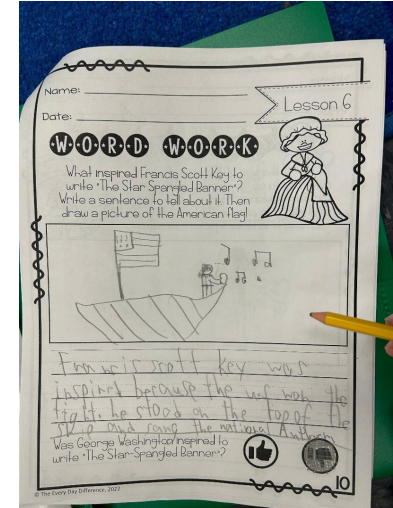 Name:
Lesson 6
Date:
WORD WORK
What inspired Francis Scott Key to
write "The Star Spangled Banner"?
Write a sentence to tell about it. Then
draw a picture of the American flag!
Francis scott key was
inspired because the usf won the
fight. he stood on the top of the
ship and sang the national Anthem
Was George Washington inspired to
write "The Star-Spangled Banner"?
10
© The Every Day Difference, 2022